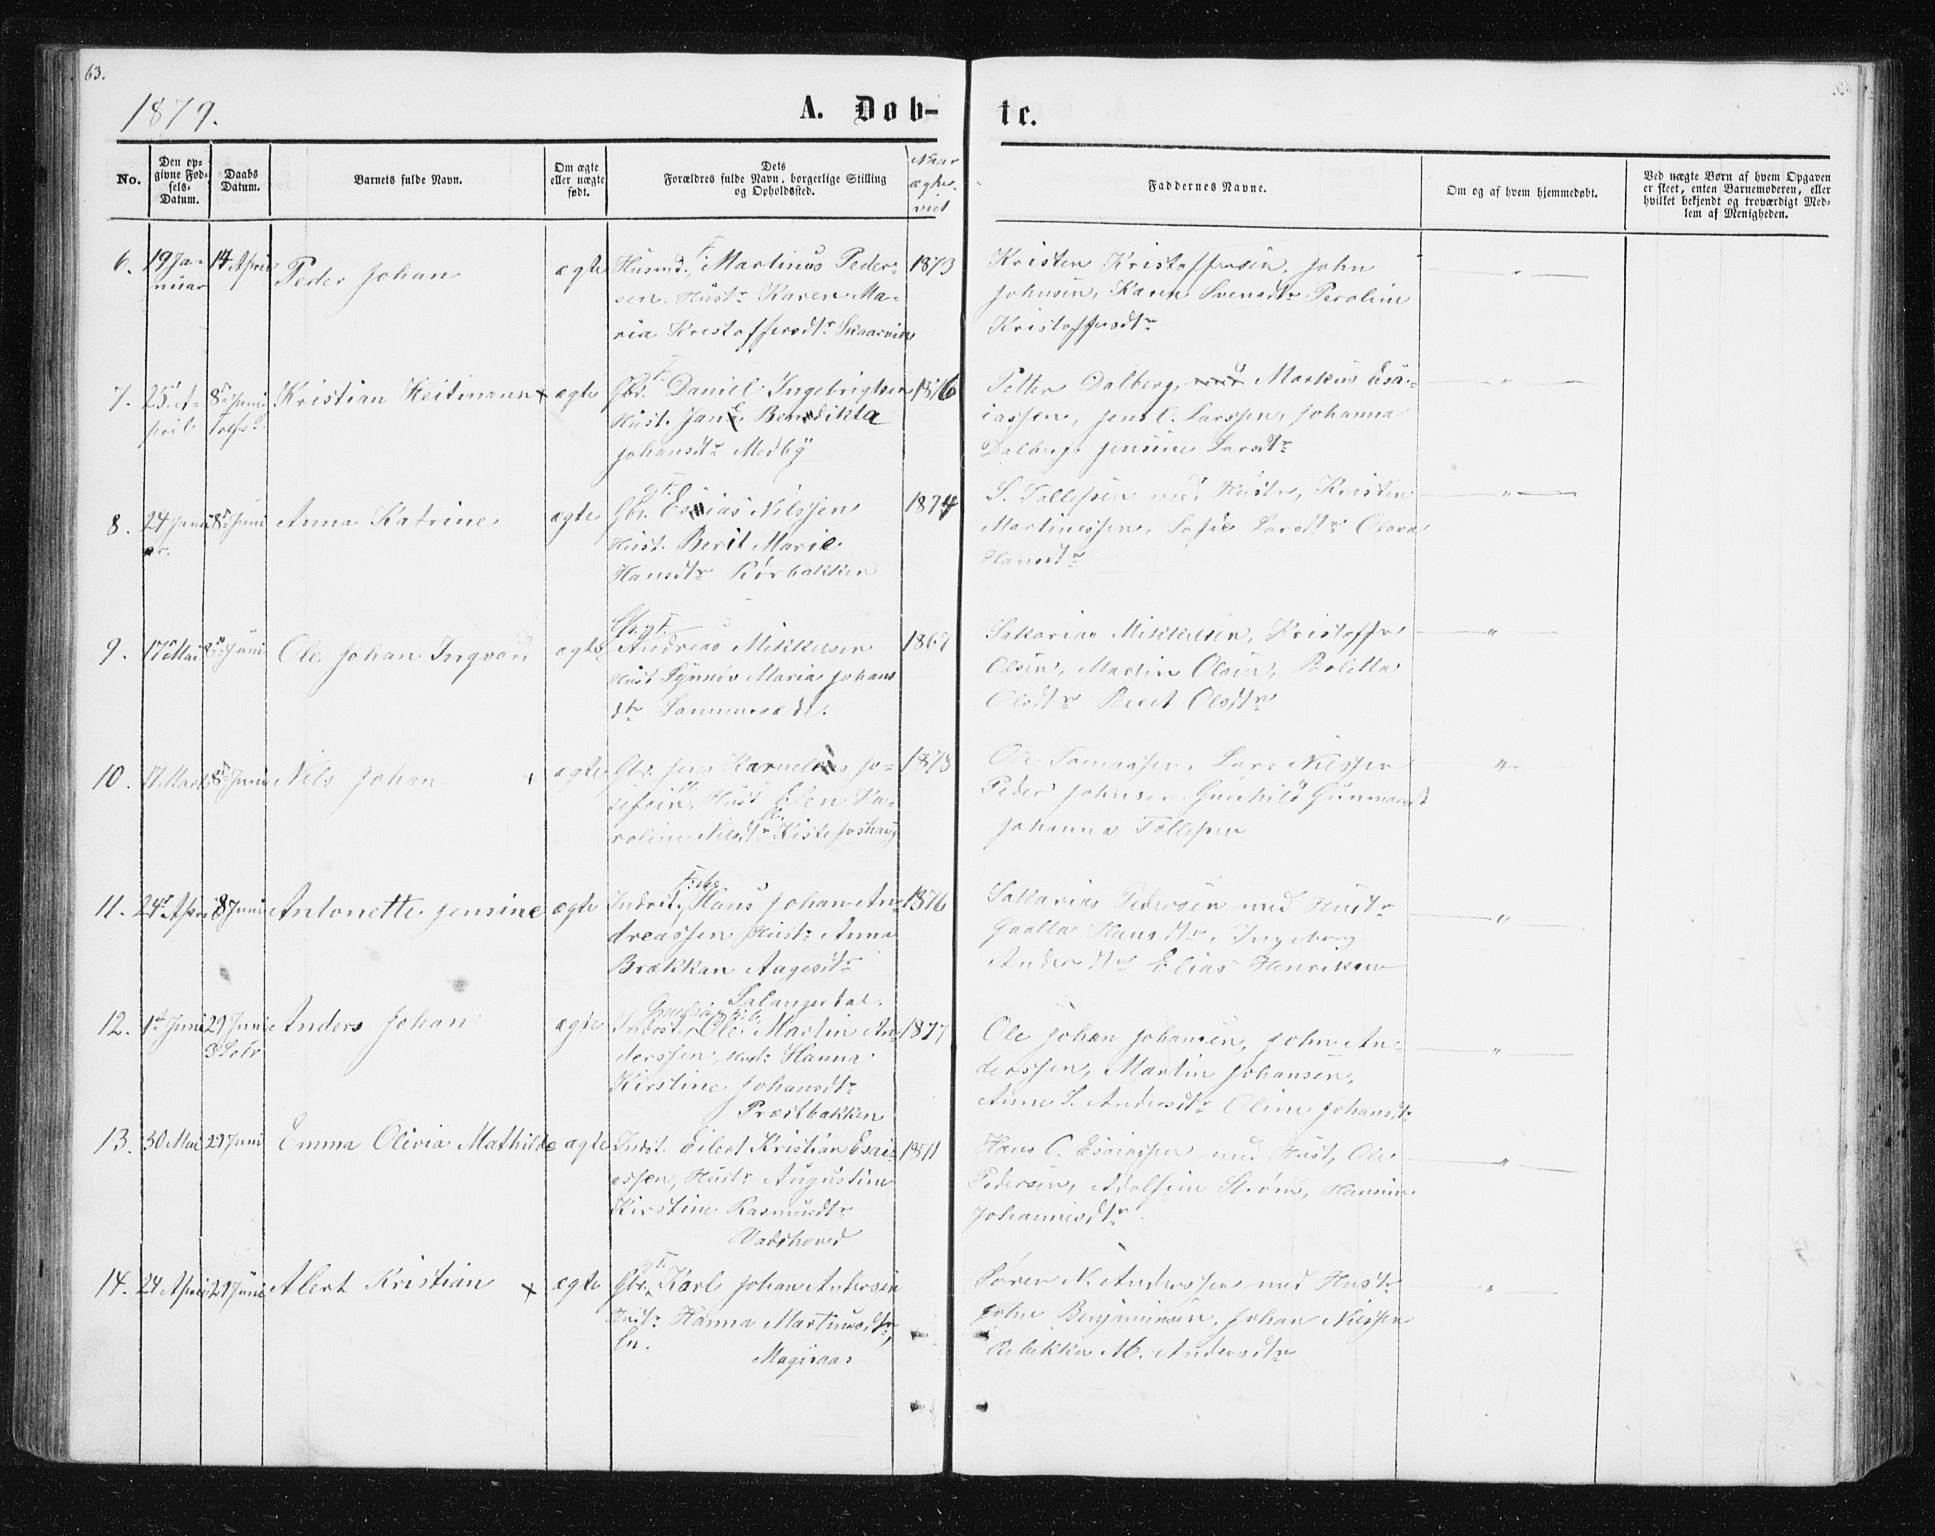 63.
1879.
A. Døb-
te.
No.
Den op-
givne Fød-
sels-
Datum.
Daabs
Datum.
Barnets fulde Navn.
Om ægte
eller uægte
født.
Dets
Forældres fulde Navn, borgerlige Stilling
og Opholdssted.
Naar
ægte-
viet
Faddernes Navne.
Om og af hvem hjemmedøbt.
Ved uægte Børn af hvem Opgaven
er skeet, enten Barnemoderen, eller
hvilket bekjendt og troværdigt Med-
lem af Menigheden.
6. 19 Ja- 14 April Peder Johan ægte Husmd. F. Martinus Peder- 1873
nuar
sen, Hustr Karen Ma-
ria Kristoffersdtr Skaarvik
Kristen Kristoffersen, John
Johnsen, Karen Svensdtr Peroline
Kristoffersdtr
7. 25 A- 8de Juni Kristian Heitmann x ægte Gbr. F. Daniel Ingebrigtsen 1876
pril
Hust. Jane Bendikta
Johansdtr Medby
Petter Dalberg, Markus Esa-
iassen, Jens C. Larssen, Johanna
Dalberg, Jensine Larsdtr
8. 24 Janu- 8de Juni Anna Katrine ægte Gbr. Esaias Nilssen 1874
ar.
Hust. Berit Marie
Hansdtr Rørbakken
S. Tollefsen med Hustr, Kristen
Martinussen, Sofie Larsdtr Olava
Hansdtr
9. 17 Mai 8de Juni Ole Johan Ingvard ægte Andreas Mikkelsen 1867
Hust Synnøv Maria Johans
dtr
Sakarias Mikkelsen, Kristoffer
Olsen, Martin Olsen, Boletta
Olsdtr Berit Olsdtr
10. 17 Marts 8de Juni Nils Johan x ægte Gbr. Jens Karnelius Jo- 1878
sefsen, Hust Elen Ka-
roline Nilsdtr Kistefoshaug
Ole Tomassen, Lars Nilssen
Peder Johnsen Gunhild
Johanna Tollefsen
11. 24 April 8 Juni Antonette Jensine ægte Indrst. Hans Johan An- 1876
dreassen Hustr Anna
Brækkan Aagesdtr
Salangsdal.
Sakarias Pedersen med Hustr
Hansdtr, Ingeborg
Andersdtr Elias Henriksen
12. 1ste Juni 29 Juni Anders Johan ægte Indrst. Ole Martin An- 1877
derssen, Hustr Hanna
Kirstine Johansdtr
Præstbakken
Ole Johan Johansen, John An-
derssen, Martin Johansen,
Anne S. Andersdtr Oline Johansdtr
13. 30 Mai 29 Juni Emma Olivia Mathilde ægte Indst. Eilert Kristian Esai- 1871
assen, Hustr Augustine
Kirstine Rasmusdtr
Vadshoved
Hans C. Esaiassen med Hust, Ole
Pedersen, Adolfine Strøm, Hansine
Johannesdtr
14. 24 April 29 Juni Alert Kristian x ægte Gbr. F. Karl Johan Andersen
Hustr Hanna Martinusdtr,
Søren N. Anderssen med Hustr
John Benjaminsen, Johan Nilssen
Rebekka M. Andersdtr